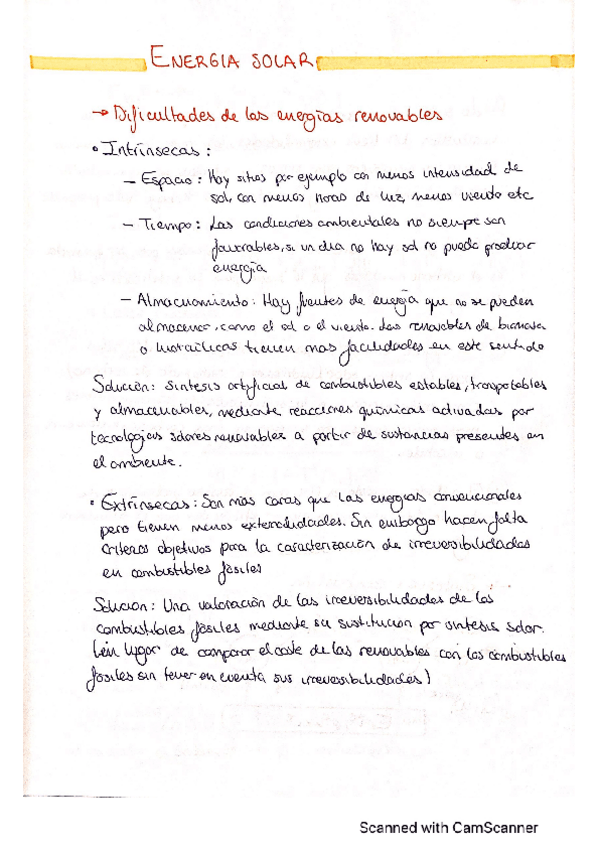 ENERGIA SOLAR
→ Dificultades de las energías renovables
• Intrínsecas:
– Espacio: Hay sitios por ejemplo con menos intensidad de
sol, con menos horas de luz, menos viento etc
– Tiempo: Las condiciones ambientales no siempre son
favorables, si un día no hay sol no puedo producir
energía
– Almacenamiento: Hay fuentes de energía que no se pueden
almacenar, como el sol o el viento. Las renovables de biomasa
o hidráulicas tienen mas facilidades en este sentido
Solución: Sintesis artificial de combustibles estables, transportables
y almacenables, mediante reacciones químicas activadas por
tecnologías solares renovables a partir de sustancias presentes en
el ambiente.
• Extrínsecas: Son más caras que las energías convencionales
pero tienen menos externalidades. Sin embargo hacen falta
criterios objetivos para la caracterización de irreversibilidades
en combustibles fósiles
Solución: Una valoración de las irreversibilidades de los
combustibles fósiles mediante su sustitucion por sintesis solar.
(en lugar de comparar el coste de las renovables con los combustibles
fósiles sin tener en cuenta sus irreversibilidades)
Scanned with CamScanner